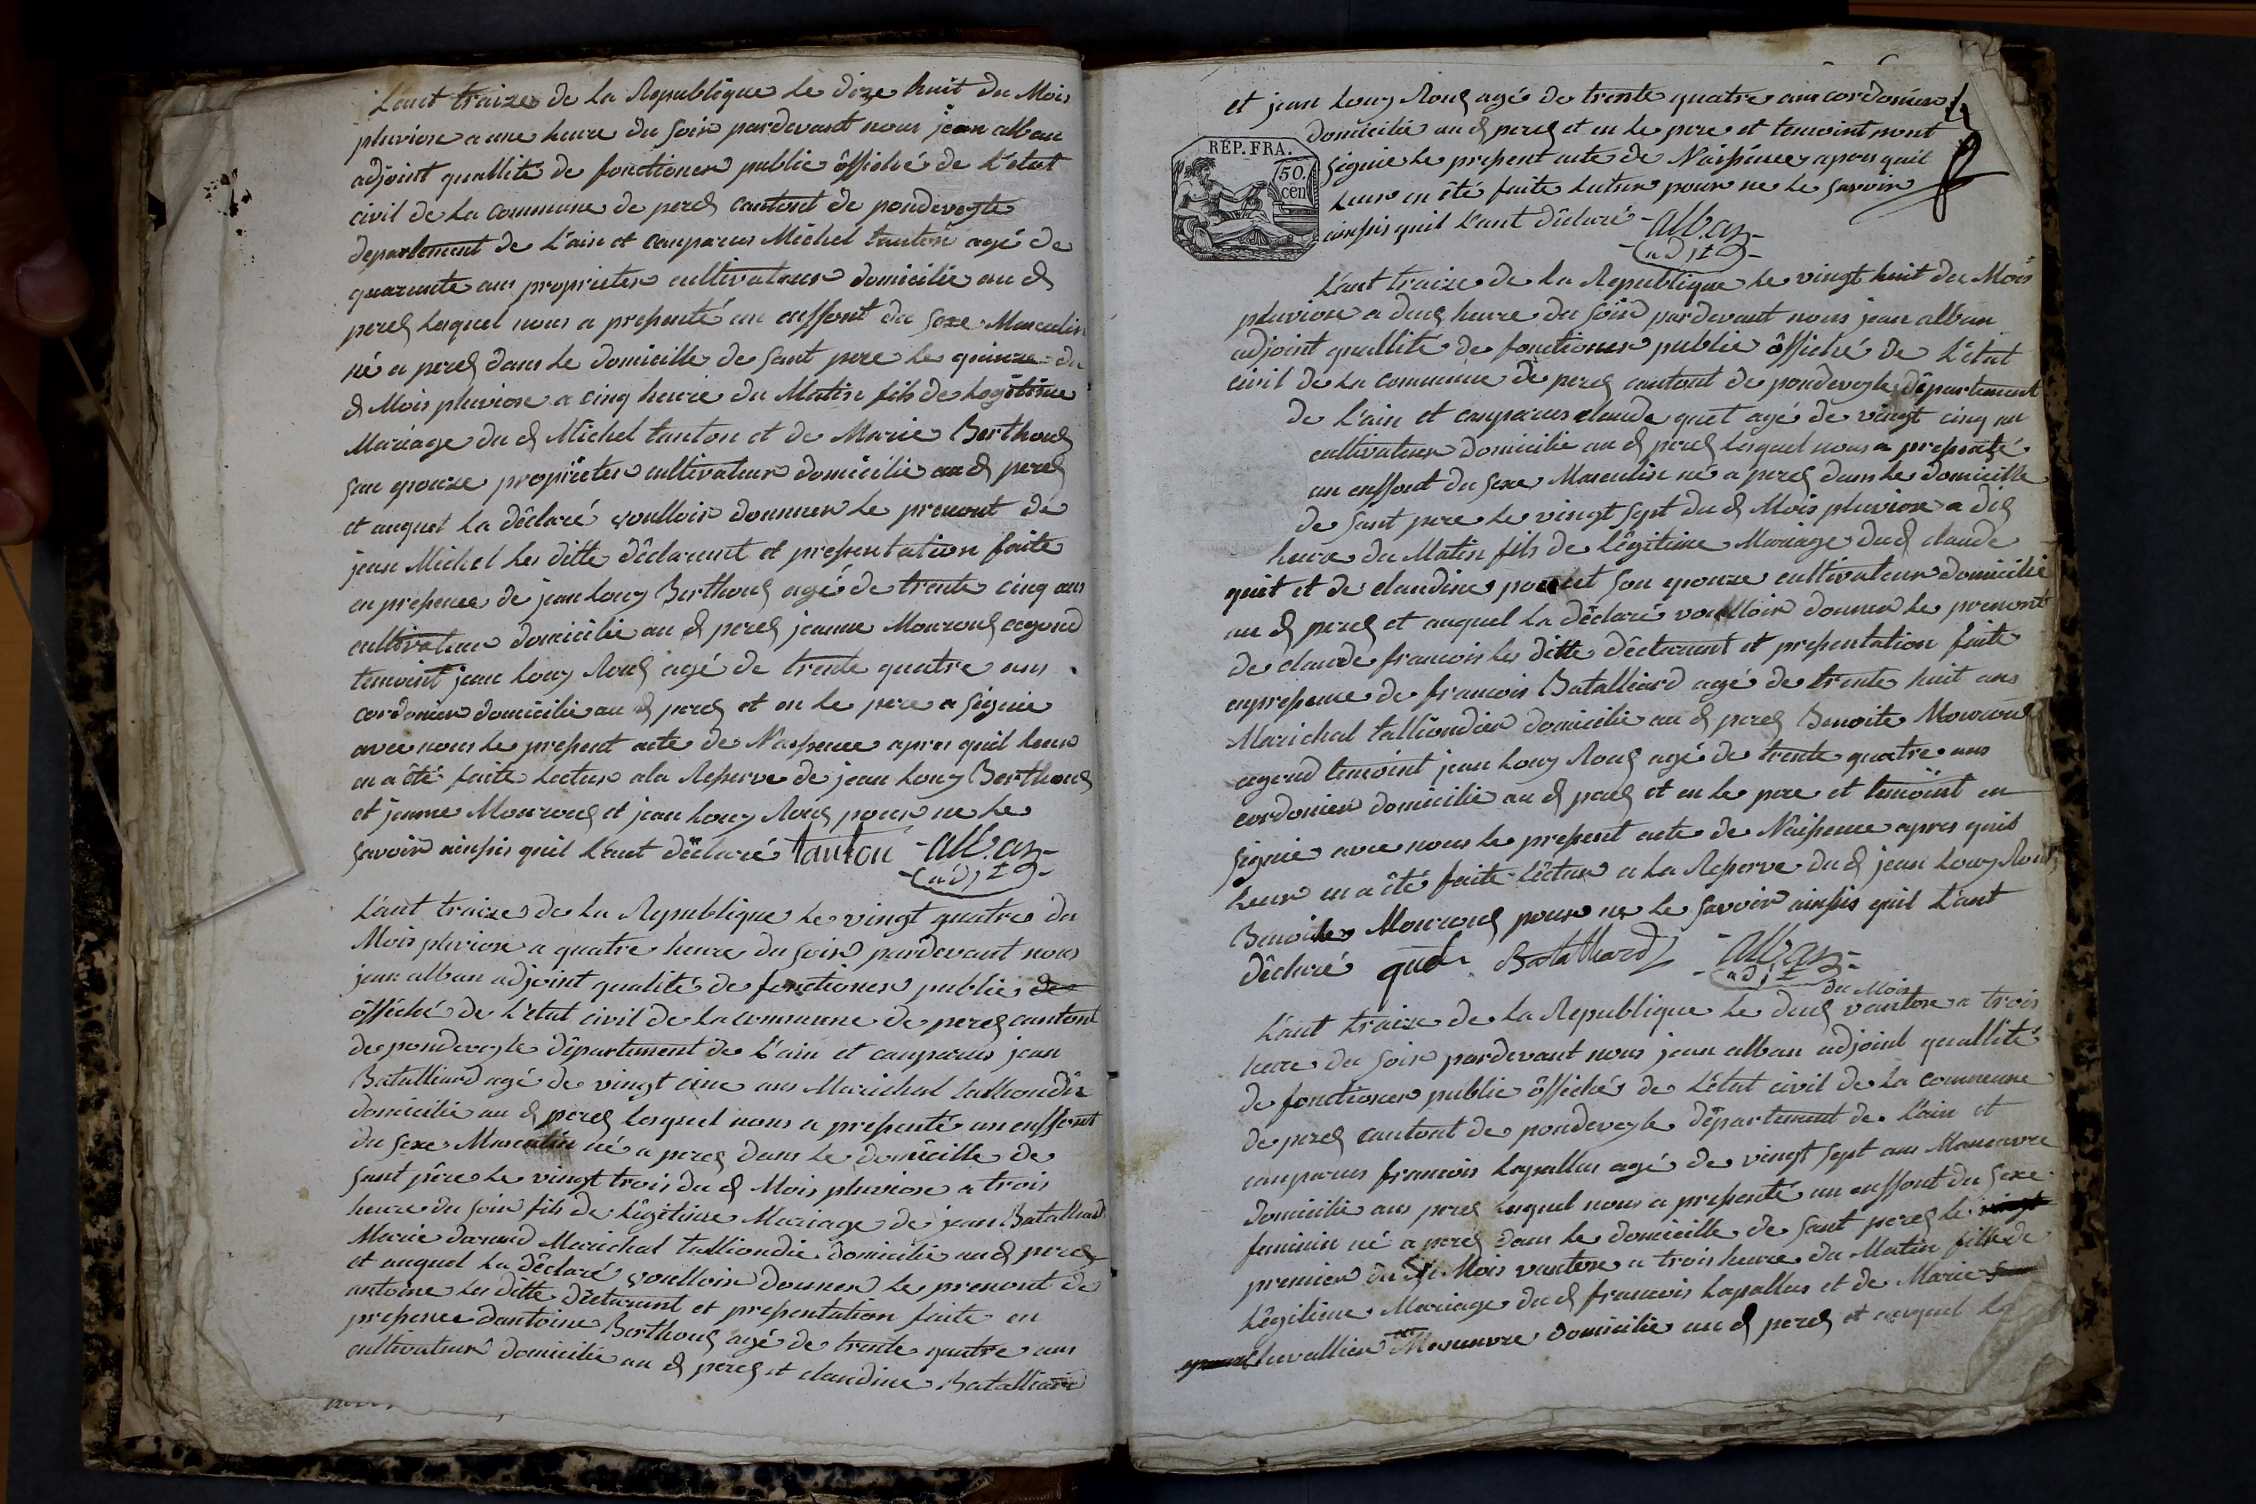 L'ant traize de la Republique le dize huit du Mois
pluviose a une heure du soir pardevant nous jean alban
adjoint quallité de fonctioner public ôffiché de L'état
civil de La commune de perex cantont de pondeveyle
departement de L'ain et conparus Michel tanton agé de
quarante ans proprieter cultivateur domicilie au d
perex lequel nous a presenté un enffent du sexe Masculin
né a perex dans le domicille de sant pere le quinze du
d Mois pluviose a cinq heure du Matin fils de Legitime
Mariage du d Michel tanton et de Marie Berthoux
san epouze proprieter cultivateur domicilie au d perex
et auquel La dêclaré voulloir donner le prenont de
jean Michel Les ditte dêclarant et presentation faite
en presence de jean Louy Berthoux agé de trente cinq ans
cultivateur domicilie au d perex jeanne Monroux agend
temoint jean Louy Roux agé de trente quatre ans
cordonier domicilie au d perex et en le pere a signie
avec nous le present acte de Naissence apres quil leur
en a êté faite Lectur a la Reserve de jean Louy Berthoux
et jeanne Monroux et jean Louy Roux pour ne le
savoir ainsis quil L'ant dêclaré tanton alban
adjt
L'ant traize de La Republique le vingt quatre du
Mois pluviose a quatre heure du soir pardevant nous
jean alban adjoint qualité de fonctioner public de
ôffiché de L'état civil de La commune de perex cantont
de pondeveyle dêpartement de L'ain et conparus jean
Batalliard agé de vingt cinc ans Marichal talliondie
domicilie au d perex lequel nous a presenté un enffent
du sexe Masculin né a perex dans le domicille de
sant pere le vingt trois du d Mois pluviose a trois
heure du soir fils de Légitime Mariage de jean Batalliard
Marie Marichal talliondie domicilie au d perex
et auquel La dêclaré voulloir donner le prenont de
antoine Les ditte dêclarant et presentation faite en
presence dantoine Berthoux agé de trente quatre ans
cultivateur domicilie au d perex et claudine Batalliard
et jean Louy Roux agé de trente quatre ans cordonier
domicilie au d perex et en le pere et temoint nont
REP. FRA.
50.
cen
signie le present acte de Naissence apres quil
leur en êté faite Lectur pour ne le savoir
ainsis quil L'ant dêclaré alban
adjt
L'ant traize de La Republique le vingt huit du Mois
pluviose a deux heure du soir pardevant nous jean alban
adjoint quallité de fonctioner public ôffiché de L'état
civil de La commune de perex cantont de pondeveyle dêpartement
de L'ain et conparus claude guet agé de vingt cinq an
cultivateur domicilie au d perex lequel nous a presenté
un enffent du sexe Masculin né a perex dans le domicille
de sant pere le vingt sept du d Mois pluviose a dix
heure du Matin fils de Légitime Mariage du d claude
guet et de claudine son epouze cultivateur domicilie
au d perex et auquel La dêclaré voulloir donner le prenont
de claude francois Les ditte dêclarant et presentation faite
en presence de francois Batalliard agé de trente huit ans
Marichal talliondier domicilie au d perex Benoite Monroux
agend temoint jean Louy Roux agé de trente quatre ans
cordonier domicilie au d perex et en le pere et temoint en
signie avec nous le present acte de Naissence apres quil
leur en a êté faite Lêctur a La Reserve du d jean Louy Roux
Benoite Monroux pour ne le savoir ainsis quil L'ant
dêclaré guet Batalliard alban
adjt
du Mois
L'ant traize de La Republique le deux vantose a trois
heure du soir pardevant nous jean alban adjoint quallité
de fonctioner public ôffiché de L'état civil de La commune
de perex cantont de pondeveyle dêpartement de L'ain et
conparus francois Lapallus agé de vingt sept ans Maneuvre
domicilie aus perex lequel nous a presenté un enffent du sexe
feminin né a perex dans le domicille de sant perex le vingt
premier du d Mois vantose a trois heure du Matin fille de
Légitime Mariage du d francois Lapallus et de Marie
chevallier Maneuvre domicilie au d perex et auquel La